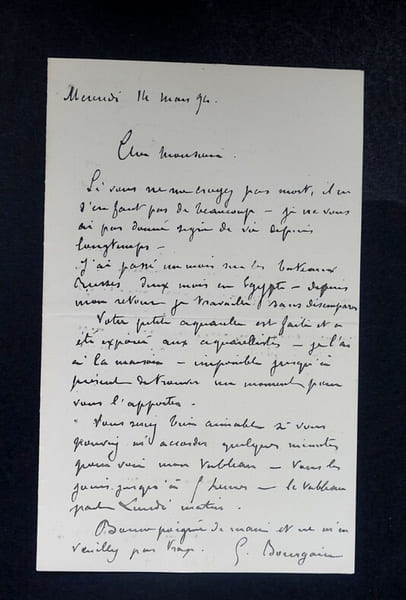 Mercredi 14 mars 94.
Cher Monsieur.
Si vous ne me croyez pas mort, il ne
s'en faut pas de beaucoup – je ne vous
ai pas donné signe de vie depuis
longtemps –
J'ai passé un mois sur les bateaux
Russes, deux mois en Egypte – depuis
mon retour je travaille sans désemparer
Votre petite aquarelle est faite et a
été exposée aux aquarellistes – je l'ai
à la maison – impossible jusqu'à
présent de trouver un moment pour
vous l'apporter.
Vous seriez bien aimable si vous
pouviez m'accorder quelques minutes
pour voir mon tableau – tous les
jours jusqu'à heures – le tableau
part Lundi matin.
Bonne poignée de main et ne m'en
veuillez pas trop. G. Bourgain